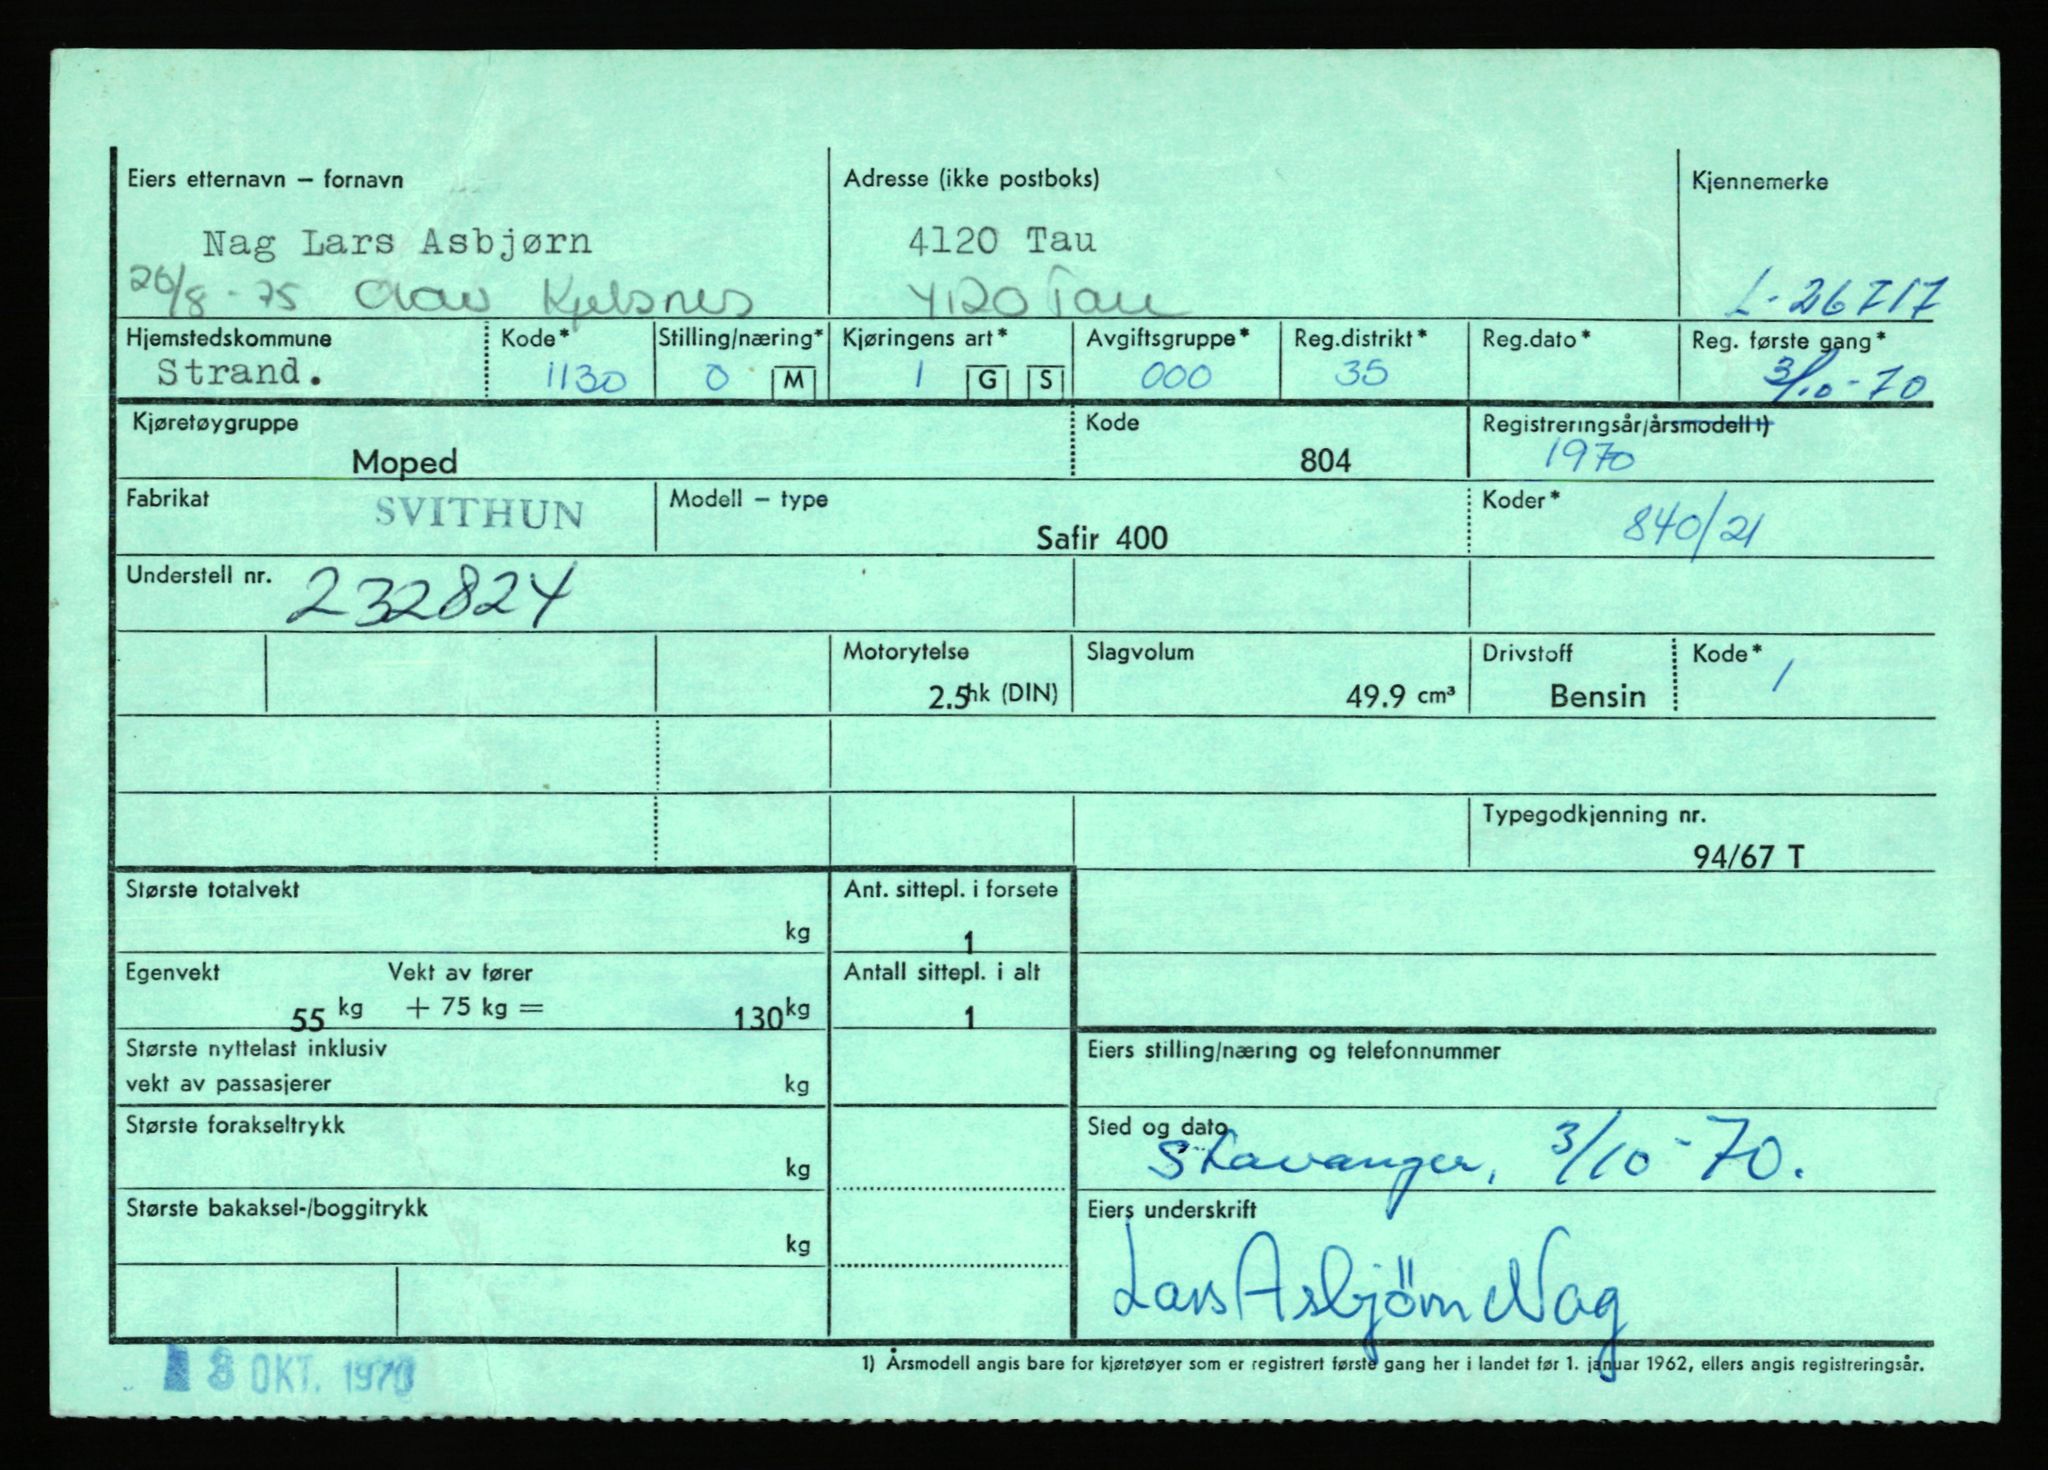 Eiers etternavn – fornavn Adresse (ikke postboks) Kjennemerke
Nag Lars Asbjørn 4120 Tau
26/8-75 Kjelsnes 4120 Tau L-26717
Hjemstedskommune Kode* Stilling/næring* Kjøringens art* Avgiftsgruppe* Reg.distrikt* Reg.dato* Reg. første gang*
Strand. 1130 0 M 1 G S 000 35 3/10-70
Kjøretøygruppe Kode Registreringsår/årsmodell 1)
Moped 804 1970
Fabrikat SVITHUN Modell – type Koder*
Safir 400 840/21
Understell nr. 232824
Motorytelse Slagvolum Drivstoff Kode*
2.5 hk (DIN) 49.9 cm³ Bensin 1
Typegodkjenning nr.
94/67 T
Største totalvekt Ant. sittepl. i forsete
kg 1
Egenvekt Vekt av fører Antall sittepl. i alt
55 kg + 75 kg = 130 kg 1
Største nyttelast inklusiv Eiers stilling/næring og telefonnummer
vekt av passasjerer kg
Største forakseltrykk Sted og dato
kg Stavanger, 3/10-70.
Største bakaksel-/boggitrykk Eiers underskrift
kg
Lars Asbjörn Nag
8 OKT. 1970 1) Årsmodell angis bare for kjøretøyer som er registrert første gang her i landet før 1. januar 1962, ellers angis registreringsår.